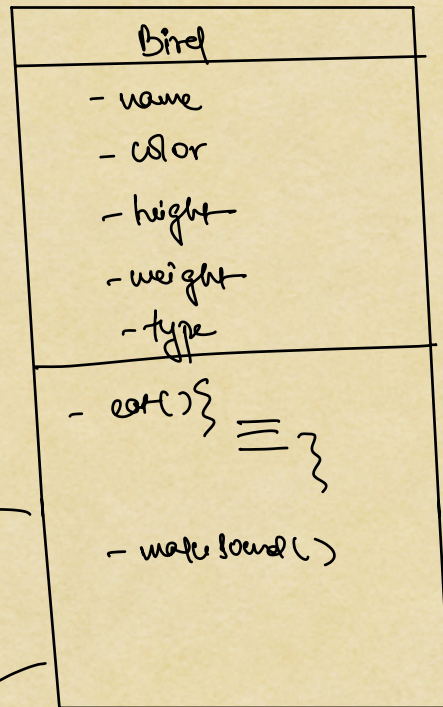 Bird
- name
- color
- height
- weight
- type
- eat(){
}
- makeSound()